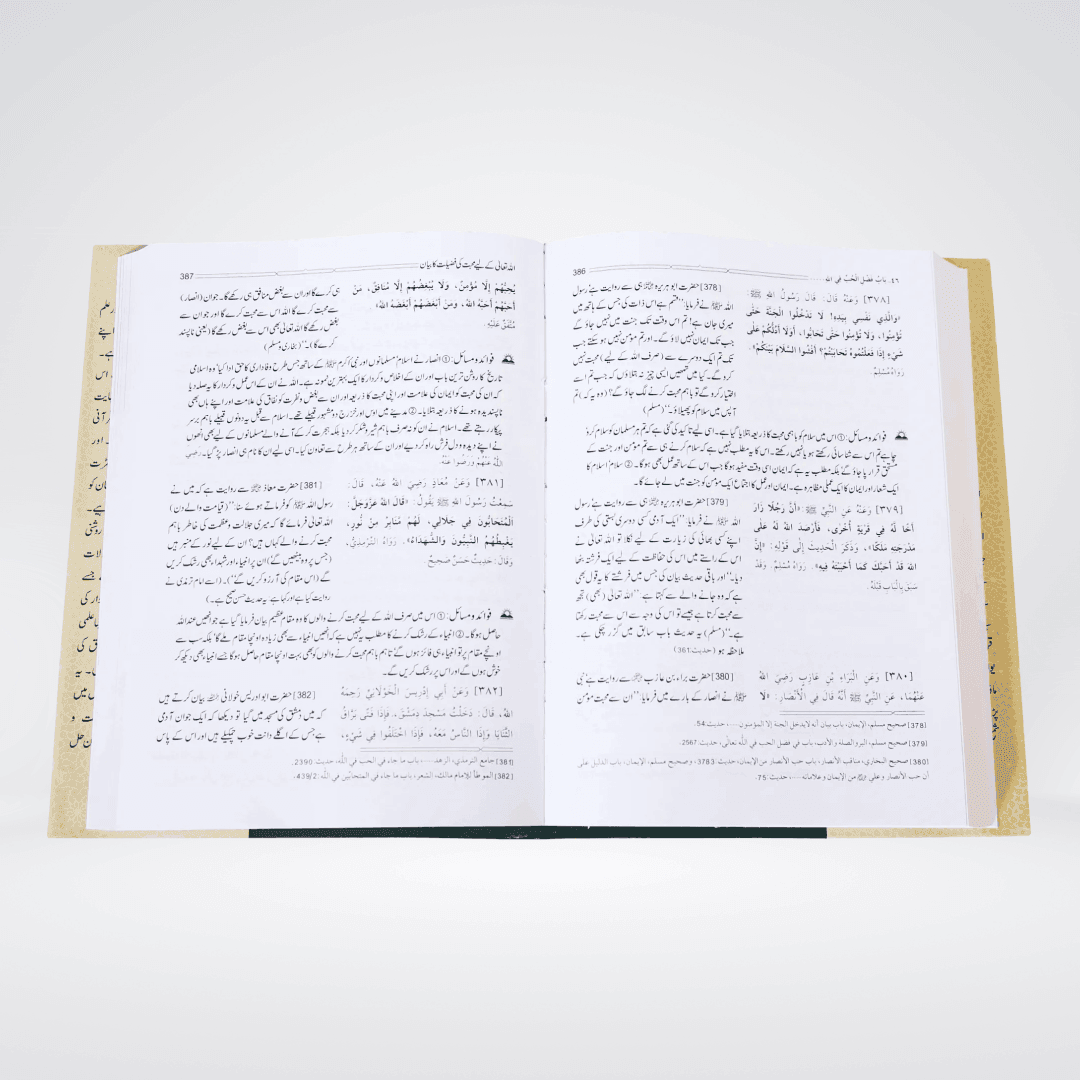 ٤٦ ـ بَابُ فَضْلِ الْحُبِّ فِي اللهِ ......
386
[٣٧٨] وَعَنْهُ قَالَ: قَالَ رَسُولُ اللهِ ﷺ:
«وَالَّذِي نَفْسِي بِيَدِهِ! لَا تَدْخُلُوا الْجَنَّةَ حَتَّى
تُؤْمِنُوا، وَلَا تُؤْمِنُوا حَتَّى تَحَابُّوا، أَوَلَا أَدُلُّكُمْ عَلَى
شَيْءٍ إِذَا فَعَلْتُمُوهُ تَحَابَبْتُمْ؟ أَفْشُوا السَّلَامَ بَيْنَكُمْ».
رَوَاهُ مُسْلِمٌ.
[378] حضرت ابو ہریرہ ہی سے روایت ہے رسول
اللہ ﷺ نے فرمایا: ”قسم ہے اس ذات کی جس کے ہاتھ میں
میری جان ہے! تم اس وقت تک جنت میں نہیں جاؤ گے
جب تک ایمان نہیں لاؤ گے۔ اور تم مومن نہیں ہو سکتے جب
تک تم ایک دوسرے سے (صرف اللہ کے لیے) محبت نہیں
کرو گے۔ کیا میں تمھیں ایسی چیز نہ بتلاؤں کہ جب تم اسے
اختیار کرو گے تو باہم محبت کرنے لگ جاؤ گے؟ (وہ یہ کہ) تم
آپس میں سلام کو پھیلاؤ۔“ (مسلم)
فوائد و مسائل: ① اس میں سلام کو باہمی محبت کا ذریعہ بتلایا گیا ہے۔ اسی لیے تاکید کی گئی ہے کہ تم ہر مسلمان کو سلام کرو
چاہے تم اس سے شناسائی رکھتے ہو یا نہیں رکھتے۔ اس کا یہ مطلب نہیں ہے کہ سلام کرنے ہی سے تم مومن اور جنت کے
مستحق قرار پا جاؤ گے بلکہ مطلب یہ ہے کہ ایمان اسی وقت مفید ہوگا جب اس کے ساتھ عمل بھی ہوگا۔ ② سلام اسلام کا
ایک شعار اور ایمان کا ایک عملی مظاہرہ ہے۔ ایمان اور عمل کا اجتماع ایک مومن کو جنت میں لے جائے گا۔
[٣٧٩] وَعَنْهُ عَنِ النَّبِيِّ ﷺ: «أَنَّ رَجُلًا زَارَ
أَخًا لَهُ فِي قَرْيَةٍ أُخْرَى، فَأَرْصَدَ اللهُ لَهُ عَلَى
مَدْرَجَتِهِ مَلَكًا»، وَذَكَرَ الْحَدِيثَ إِلَى قَوْلِهِ: «إِنَّ
اللهَ قَدْ أَحَبَّكَ كَمَا أَحْبَبْتَهُ فِيهِ». رَوَاهُ مُسْلِمٌ. وَقَدْ
سَبَقَ بِالْبَابِ قَبْلَهُ.
[379] حضرت ابو ہریرہ ہی سے روایت ہے رسول
اللہ ﷺ نے فرمایا: ”ایک آدمی کسی دوسری بستی کی طرف
اپنے کسی بھائی کی زیارت کے لیے نکلا تو اللہ تعالیٰ نے
اس کے راستے میں اس کی حفاظت کے لیے ایک فرشتہ بٹھا
دیا۔“ اور باقی حدیث بیان کی جس میں فرشتے کا یہ قول بھی
ہے کہ وہ جانے والے سے کہتا ہے: ”اللہ تعالیٰ (بھی) تجھ
سے محبت کرتا ہے جیسے تو اس کی وجہ سے اس سے محبت رکھتا
ہے۔“ (مسلم) یہ حدیث باب سابق میں گزر چکی ہے۔
ملاحظہ ہو (حدیث:361)
[٣٨٠] وَعَنِ الْبَرَاءِ بْنِ عَازِبٍ رَضِيَ اللهُ
عَنْهُمَا، عَنِ النَّبِيِّ ﷺ أَنَّهُ قَالَ فِي الْأَنْصَارِ: «لَا
[380] حضرت براء بن عازب سے روایت ہے نبی
ﷺ نے انصار کے بارے میں فرمایا: ”ان سے محبت مومن
[378] صحيح مسلم، الإيمان، باب بيان أنه لا يدخل الجنة إلا المؤمنون ......، حديث:54.
[379] صحيح مسلم، البر والصلة والأدب، باب في فضل الحب في الله تعالى، حديث:2567.
[380] صحيح البخاري، مناقب الأنصار، باب حب الأنصار من الإيمان، حديث:3783، وصحيح مسلم، الإيمان، باب الدليل على
أن حب الأنصار وعلي من الإيمان وعلاماته ......، حديث:75.
اللہ تعالیٰ کے لیے محبت کی فضیلت کا بیان
387
يُحِبُّهُمْ إِلَّا مُؤْمِنٌ، وَلَا يُبْغِضُهُمْ إِلَّا مُنَافِقٌ، مَنْ
أَحَبَّهُمْ أَحَبَّهُ اللهُ، وَمَنْ أَبْغَضَهُمْ أَبْغَضَهُ اللهُ».
مُتَّفَقٌ عَلَيْهِ.
ہی کرے گا اور ان سے بغض منافق ہی رکھے گا۔ جو ان (انصار)
سے محبت کرے گا اللہ اس سے محبت کرے گا اور جو ان سے
بغض رکھے گا اللہ تعالیٰ بھی اس سے بغض رکھے گا (یعنی ناپسند
کرے گا)۔“ (بخاری و مسلم)
فوائد و مسائل: ① انصار نے اسلام مسلمانوں اور نبی اکرم ﷺ کے ساتھ جس طرح وفاداری کا حق ادا کیا وہ اسلامی
تاریخ کا روشن ترین باب اور ان کے اخلاص و کردار کا ایک بہترین نمونہ ہے۔ اللہ نے ان کے اس عمل و کردار کا یہ صلہ دیا
کہ ان کی محبت کو ایمان کی علامت اور اپنی محبت کا ذریعہ اور ان سے بغض و نفرت کو نفاق کی علامت اور اپنے ہاں بھی
ناپسندیدہ ہونے کا ذریعہ بتلایا۔ ② مدینے میں اوس اور خزرج دو مشہور قبیلے تھے۔ اسلام سے قبل یہ دونوں قبیلے باہم برسر
پیکار رہتے تھے۔ اسلام نے ان کو نہ صرف باہم شیر و شکر کر دیا بلکہ ہجرت کرکے آنے والے مسلمانوں کے لیے بھی انھوں
نے اپنے دیدہ و دل فرش راہ کر دیے اور ان کے ساتھ ہر طرح سے تعاون کیا۔ اسی لیے ان کا نام ہی انصار پڑ گیا۔ رضي
الله عنهم ورضوا عنه.
[٣٨١] وَعَنْ مُعَاذٍ رَضِيَ اللهُ عَنْهُ، قَالَ:
سَمِعْتُ رَسُولَ اللهِ ﷺ يَقُولُ: «قَالَ اللهُ عَزَّوَجَلَّ:
الْمُتَحَابُّونَ فِي جَلَالِي، لَهُمْ مَنَابِرُ مِنْ نُورٍ،
يَغْبِطُهُمُ النَّبِيُّونَ وَالشُّهَدَاءُ». رَوَاهُ التِّرْمِذِيُّ،
وَقَالَ: حَدِيثٌ حَسَنٌ صَحِيحٌ.
[381] حضرت معاذ سے روایت ہے کہ میں نے
رسول اللہ ﷺ کو فرماتے ہوئے سنا: ”(قیامت والے دن)
اللہ تعالیٰ فرمائے گا کہ میری جلالت و عظمت کی خاطر باہم
محبت کرنے والے کہاں ہیں؟ ان کے لیے نور کے منبر ہیں
(جس پر وہ بیٹھیں گے) ان پر انبیاء اور شہداء بھی رشک کریں
گے (اس مقام کی آرزو کریں گے)۔“ (اسے امام ترمذی نے
روایت کیا ہے اور کہا ہے: یہ حدیث حسن صحیح ہے۔)
فوائد و مسائل: ① اس میں صرف اللہ کے لیے محبت کرنے والوں کا وہ مقام عظیم بیان فرمایا گیا ہے جو انھیں عند اللہ
حاصل ہوگا۔ ② انبیاء کے رشک کرنے کا مطلب یہ نہیں ہے کہ انھیں انبیاء سے بھی زیادہ اونچا مقام ملے گا بلکہ سب سے
اونچے مقام پر تو انبیاء ہی فائز ہوں گے تاہم باہم محبت کرنے والوں کو بھی بہت اونچا مقام حاصل ہوگا جسے انبیاء بھی دیکھ کر
خوش ہوں گے اور اس پر رشک کریں گے۔
[٣٨٢] وَعَنْ أَبِي إِدْرِيسَ الْخَوْلَانِيِّ رَحِمَهُ
اللهُ، قَالَ: دَخَلْتُ مَسْجِدَ دِمَشْقَ، فَإِذَا فَتًى بَرَّاقُ
الثَّنَايَا وَإِذَا النَّاسُ مَعَهُ، فَإِذَا اخْتَلَفُوا فِي شَيْءٍ،
[382] حضرت ابو ادریس خولانی بیان کرتے ہیں
کہ میں دمشق کی مسجد میں گیا تو دیکھا کہ ایک جوان آدمی
ہے جس کے اگلے دانت خوب چمکیلے ہیں اور اس کے پاس
[381] جامع الترمذي، الزهد......، باب ما جاء في الحب في الله، حديث:2390.
[382] الموطأ للإمام مالك، الشعر، باب ما جاء في المتحابين في الله:439/2.